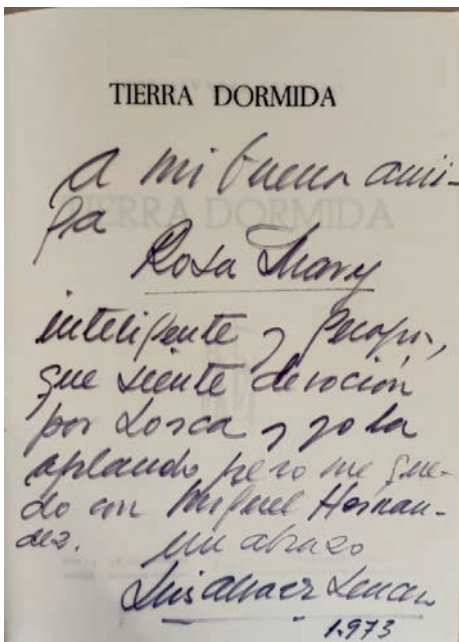 TIERRA DORMIDA
A mi buena ami-
ga
Rosa Mary
inteligente y
que siente devoción
por Lorca y yo la
aplaudo pero me que-
do con Miguel Hernan-
dez. un abrazo
Luis
1.973
TIERRA DORMIDA